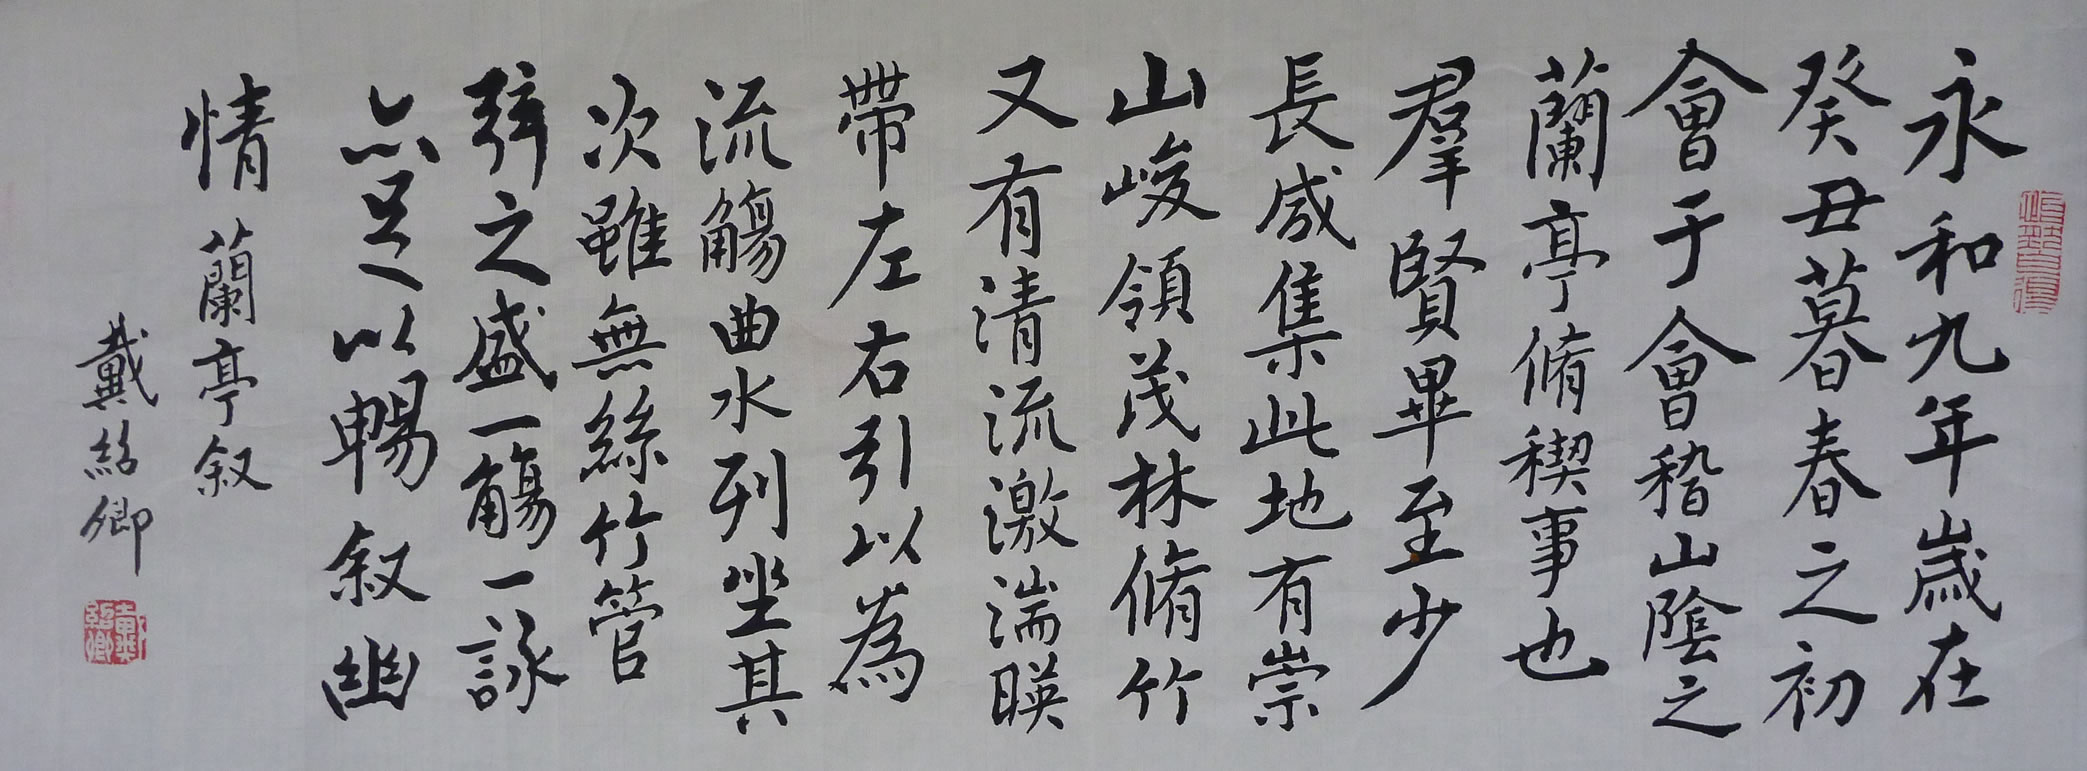 永和九年歲在
癸丑暮春之初
會于會稽山陰之
蘭亭脩稧事也
羣賢畢至少
長咸集此地有崇
山峻領茂林脩竹
又有清流激湍暎
帶左右引以為
流觴曲水列坐其
次雖無絲竹管
弦之盛一觴一詠
亦足以暢叙幽
情 蘭亭叙
戴紹卿
戴紹卿